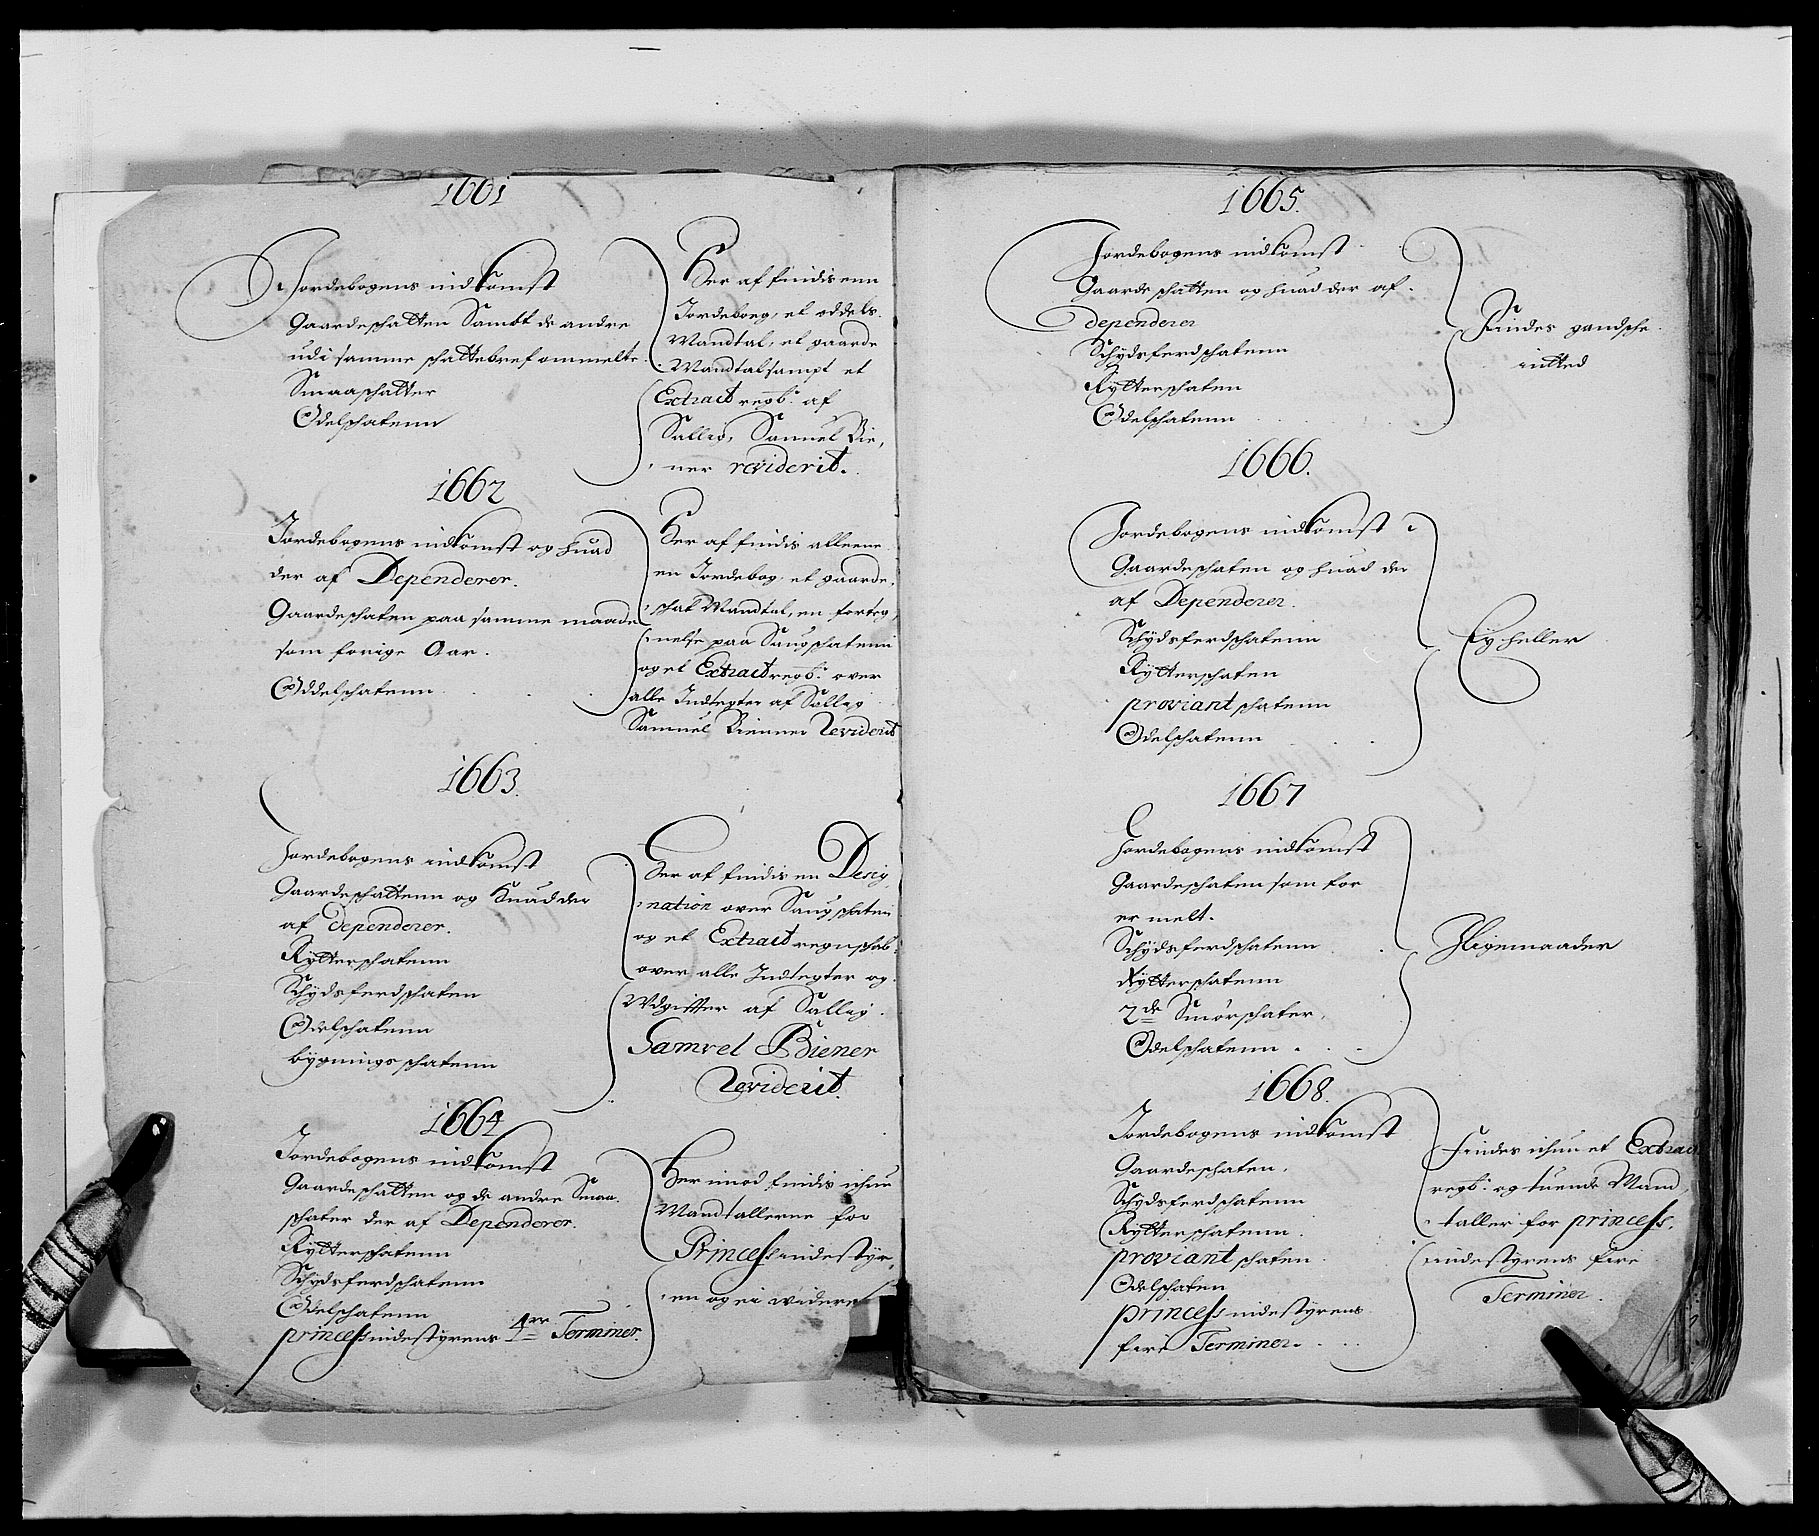 1661
Jordebogens indkomst
Gaardeschatten Sambt de andre
udi samme schattebref ommelte
Smaaschatter
Odelschatenn
Her af findis enn
Jordeboeg, et oddels
Mandtal, et gaarde
Mandtal sampt et
Extract regb: af
Sallig: Samuel Bie,
ner reviderit.
1662
Jordebogens indkomst og huad
der af Dependerer.
Gaardeschaten paa samme maade
som forige Aar.
Oddelschatenn
Her af findis alleene
en Jordebog, et gaarde,
schat Mandtal, en forteg,
nelse paa Saugschatenn
og et Extract regb: over
alle Indtegter af Sallig
Samuel Bienner Reviderit
1663.
Jordebogens indkomst
Gaardeschattenn og huad der
af dependerer.
Rytterschatenn
Schydsferdschaten
Odelschatenn
bygnings schatenn
Her af findis en Desig,
nation over Saugschaten
og et Extract regnschab:
over alle Indtegter og
Udgiffter af Sallig
Samvel Biener
Reviderit.
1664
Jordebogens indkomst
Gaardeschatten og de andre Smaa,
schater der af Dependerer.
Rytterschatenn
Schydsferdschatenn
Odelschatenn
princess indestyrens 4re Terminer.
Her imod findis ichun
Mandtallerne for
Princess: indestyr,
en og ei widere
1665.
Jordebogens indkomst
Gaardeschatten og huad der af
dependerer
Schydsferdschatenn
Rytterschaten
Odelschatenn
Findes gandsche
intted
1666.
Jordebogens indkomst
Gaardeschaten og huad der
af Dependerer.
Schydsferdschatenn
Rytterschaten
proviant schatenn
Odelschatenn
Ey heller
1667
Jordebogens indkomst
Gaardeschaten som for
er melt.
Schydsferdschatenn
Rytterschatenn
2de Smörschater,
Odelschatenn
Iligemaader
1668.
Jordebogens indkomst
Gaardeschaten.
Schydsferdschatenn
Rytterschatenn.
proviant schaten
Odelschaten
princess indestyrens
fire Terminer.
Findes ichun et Extract
regb: og tuende Mand,
taller for princess,
indestyrens fire
Terminer.